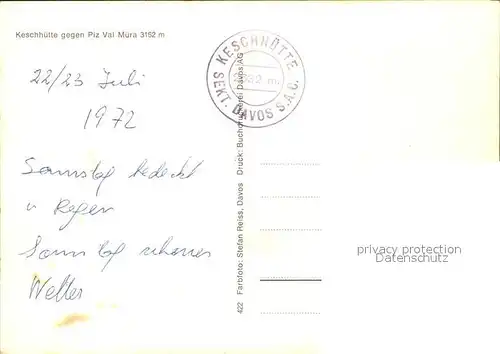 Keschhütte gegen Piz Val Müra 3152 m
KESCHHÜTTE
2632 m.
SEKT. DAVOS S.A.C.
22/23 Juli
1972
Samstag bedeckt
u Regen
Sonntag schönes
Wetter
422 Farbfoto: Stefan Reiss, Davos Druck: Buchdruckerei Davos AG
privacy protection
Datenschutz